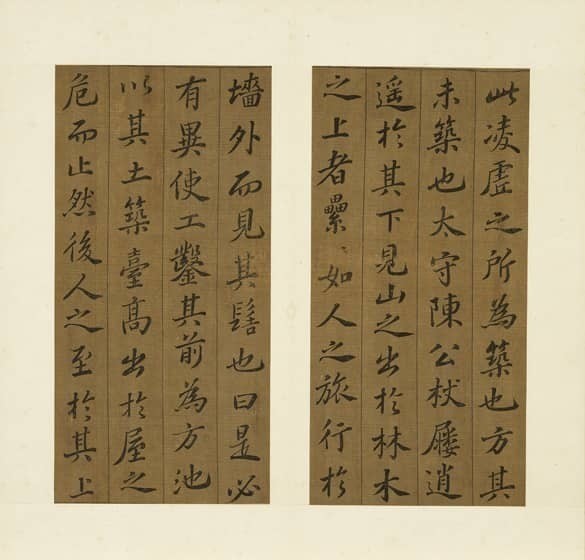 此凌虛之所為築也方其
未築也太守陳公杖屨逍
遥於其下見山之出於林木
之上者纍〻如人之旅行於
墻外而見其髻也曰是必
有異使工鑿其前為方池
以其土築臺高出於屋之
危而止然後人之至於其上